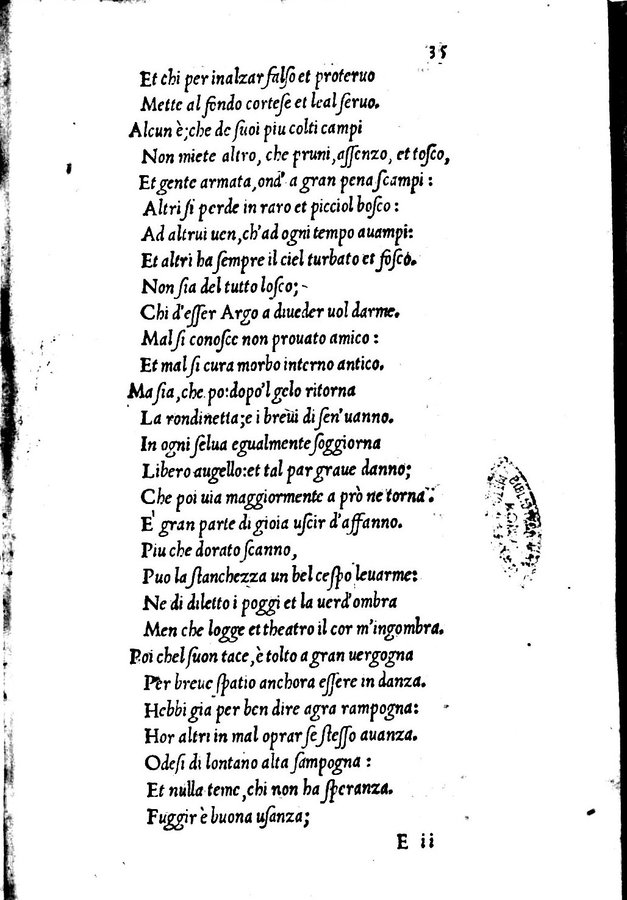 35
Et chi per inalzar falſo et proteruo
Mette al fondo corteſe et leal ſeruo.
Alcun è;che de ſuoi piu colti campi
Non miete altro, che pruni,aſſenzo, et toſco,
Et gente armata,ond' a gran pena ſcampi :
Altri ſi perde in raro et picciol boſco :
Ad altrui uen,ch'ad ogni tempo auampi:
Et altri ha ſempre il ciel turbato et foſco.
Non ſia del tutto loſco;
Chi d'eſſer Argo a diueder uol darme.
Mal ſi conoſce non prouato amico :
Et mal ſi cura morbo interno antico.
Ma ſia,che po:dopo'l gelo ritorna
La rondinetta;e i breui di ſen'uanno.
In ogni ſelua egualmente ſoggiorna
Libero augello:et tal par graue danno;
Che poi uia maggiormente a prò ne torna.
E' gran parte di gioia uſcir d'affanno.
Piu che dorato ſcanno,
Puo la ſtanchezza un bel ceſpo leuarme:
Ne di diletto i poggi et la uerd'ombra
Men che logge et theatro il cor m'ingombra.
Poi chel ſuon tace,è tolto a gran uergogna
Per breue ſpatio anchora eſſere in danza.
Hebbi gia per ben dire agra rampogna:
Hor altri in mal oprar ſe ſteſſo auanza.
Odeſi di lontano alta ſampogna :
Et nulla teme,chi non ha ſperanza.
Fuggir è buona uſanza;
E ii